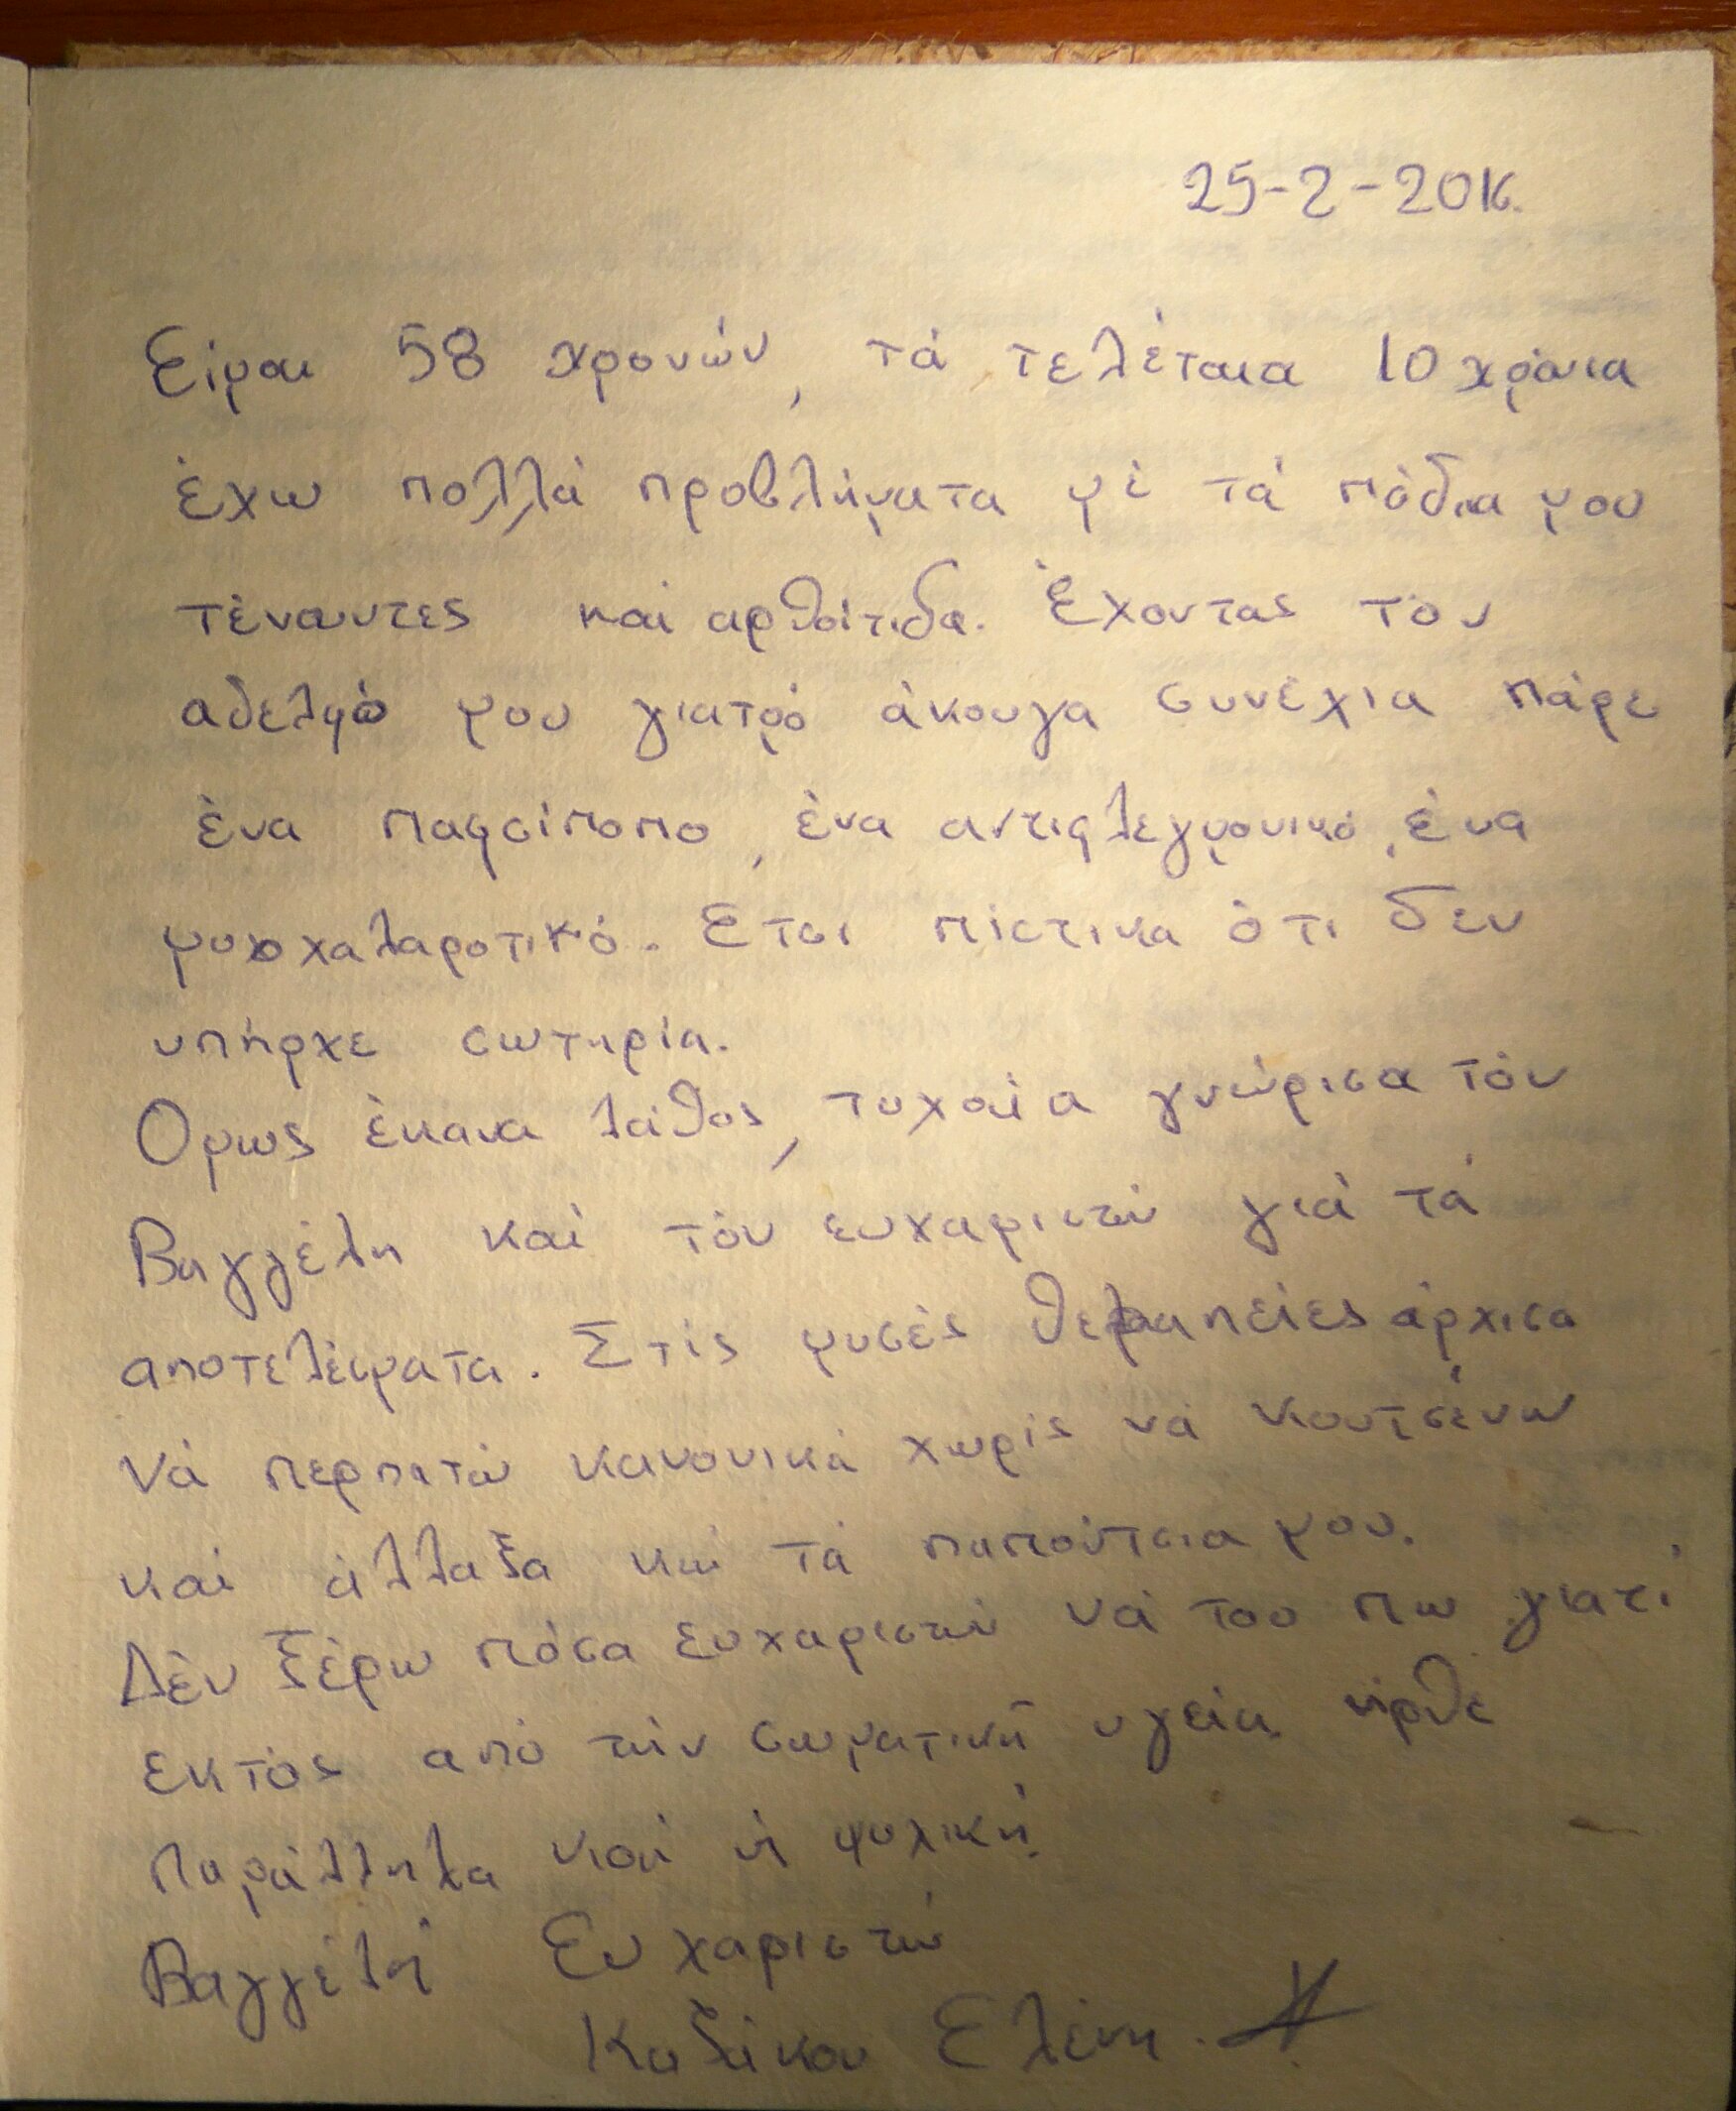 25-2-2016.
Είμαι 58 χρονών, τά τελέταια 10 χρόνια
έχω πολλά προβλήματα μέ τά πόδια μου
τένωντες καί αρθρίτιδα. Έχοντας τον
αδελφό μου γιατρό άκουγα συνέχια πάρε
ένα παυσίπονο, ένα αντιφλεγμονικό, ένα
μυοχαλαροτικό. Ετσι πίστικα ότι δεν
υπήρχε σωτηρία.
Ομως έκανα λάθος, τυχαία γνώρισα τόν
Βαγγέλη καί τόν ευχαριστώ γιά τά
αποτελέσματα. Στίς μισές θεραπείες άρχισα
νά περπατώ κανονικά χωρίς νά κουτσένω
καί άλλαξα καί τά παπούτσια μου.
Δέν ξέρω πόσα ευχαριστώ νά του πω γιατί
εκτός από τήν σωματική υγεία ήρθε
παράλληλα καί ή ψυχική.
Βαγγέλη Ευχαριστώ
Ελένη